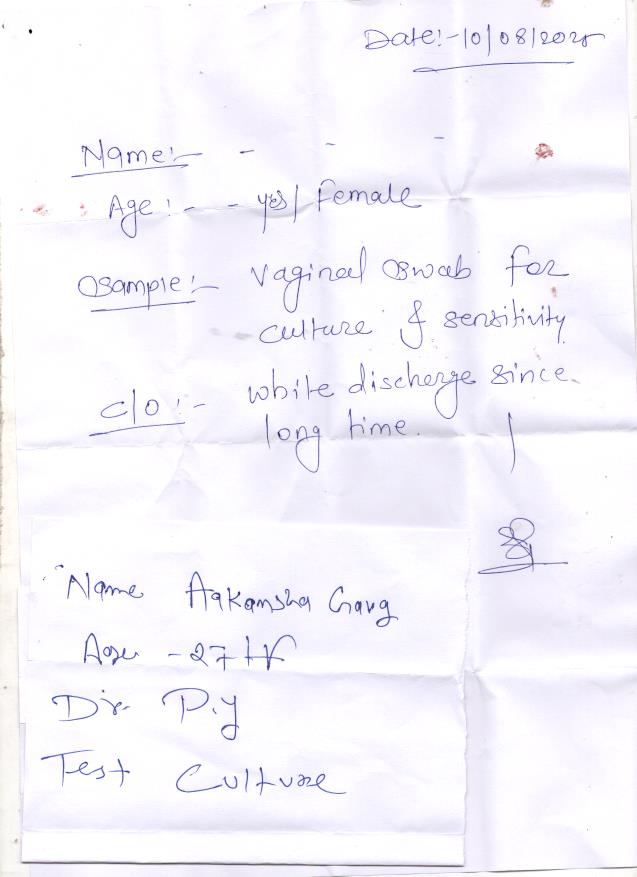 Date:-10/08/2025
Name:- - - -
Age:- - yrs/ Female
Sample:- Vaginal Swab for
culture & sensitivity
c/o:- white discherge since
long time.
Name Aakansha Garg
Age -27 Yr
Dr. P.Y
Test Culture